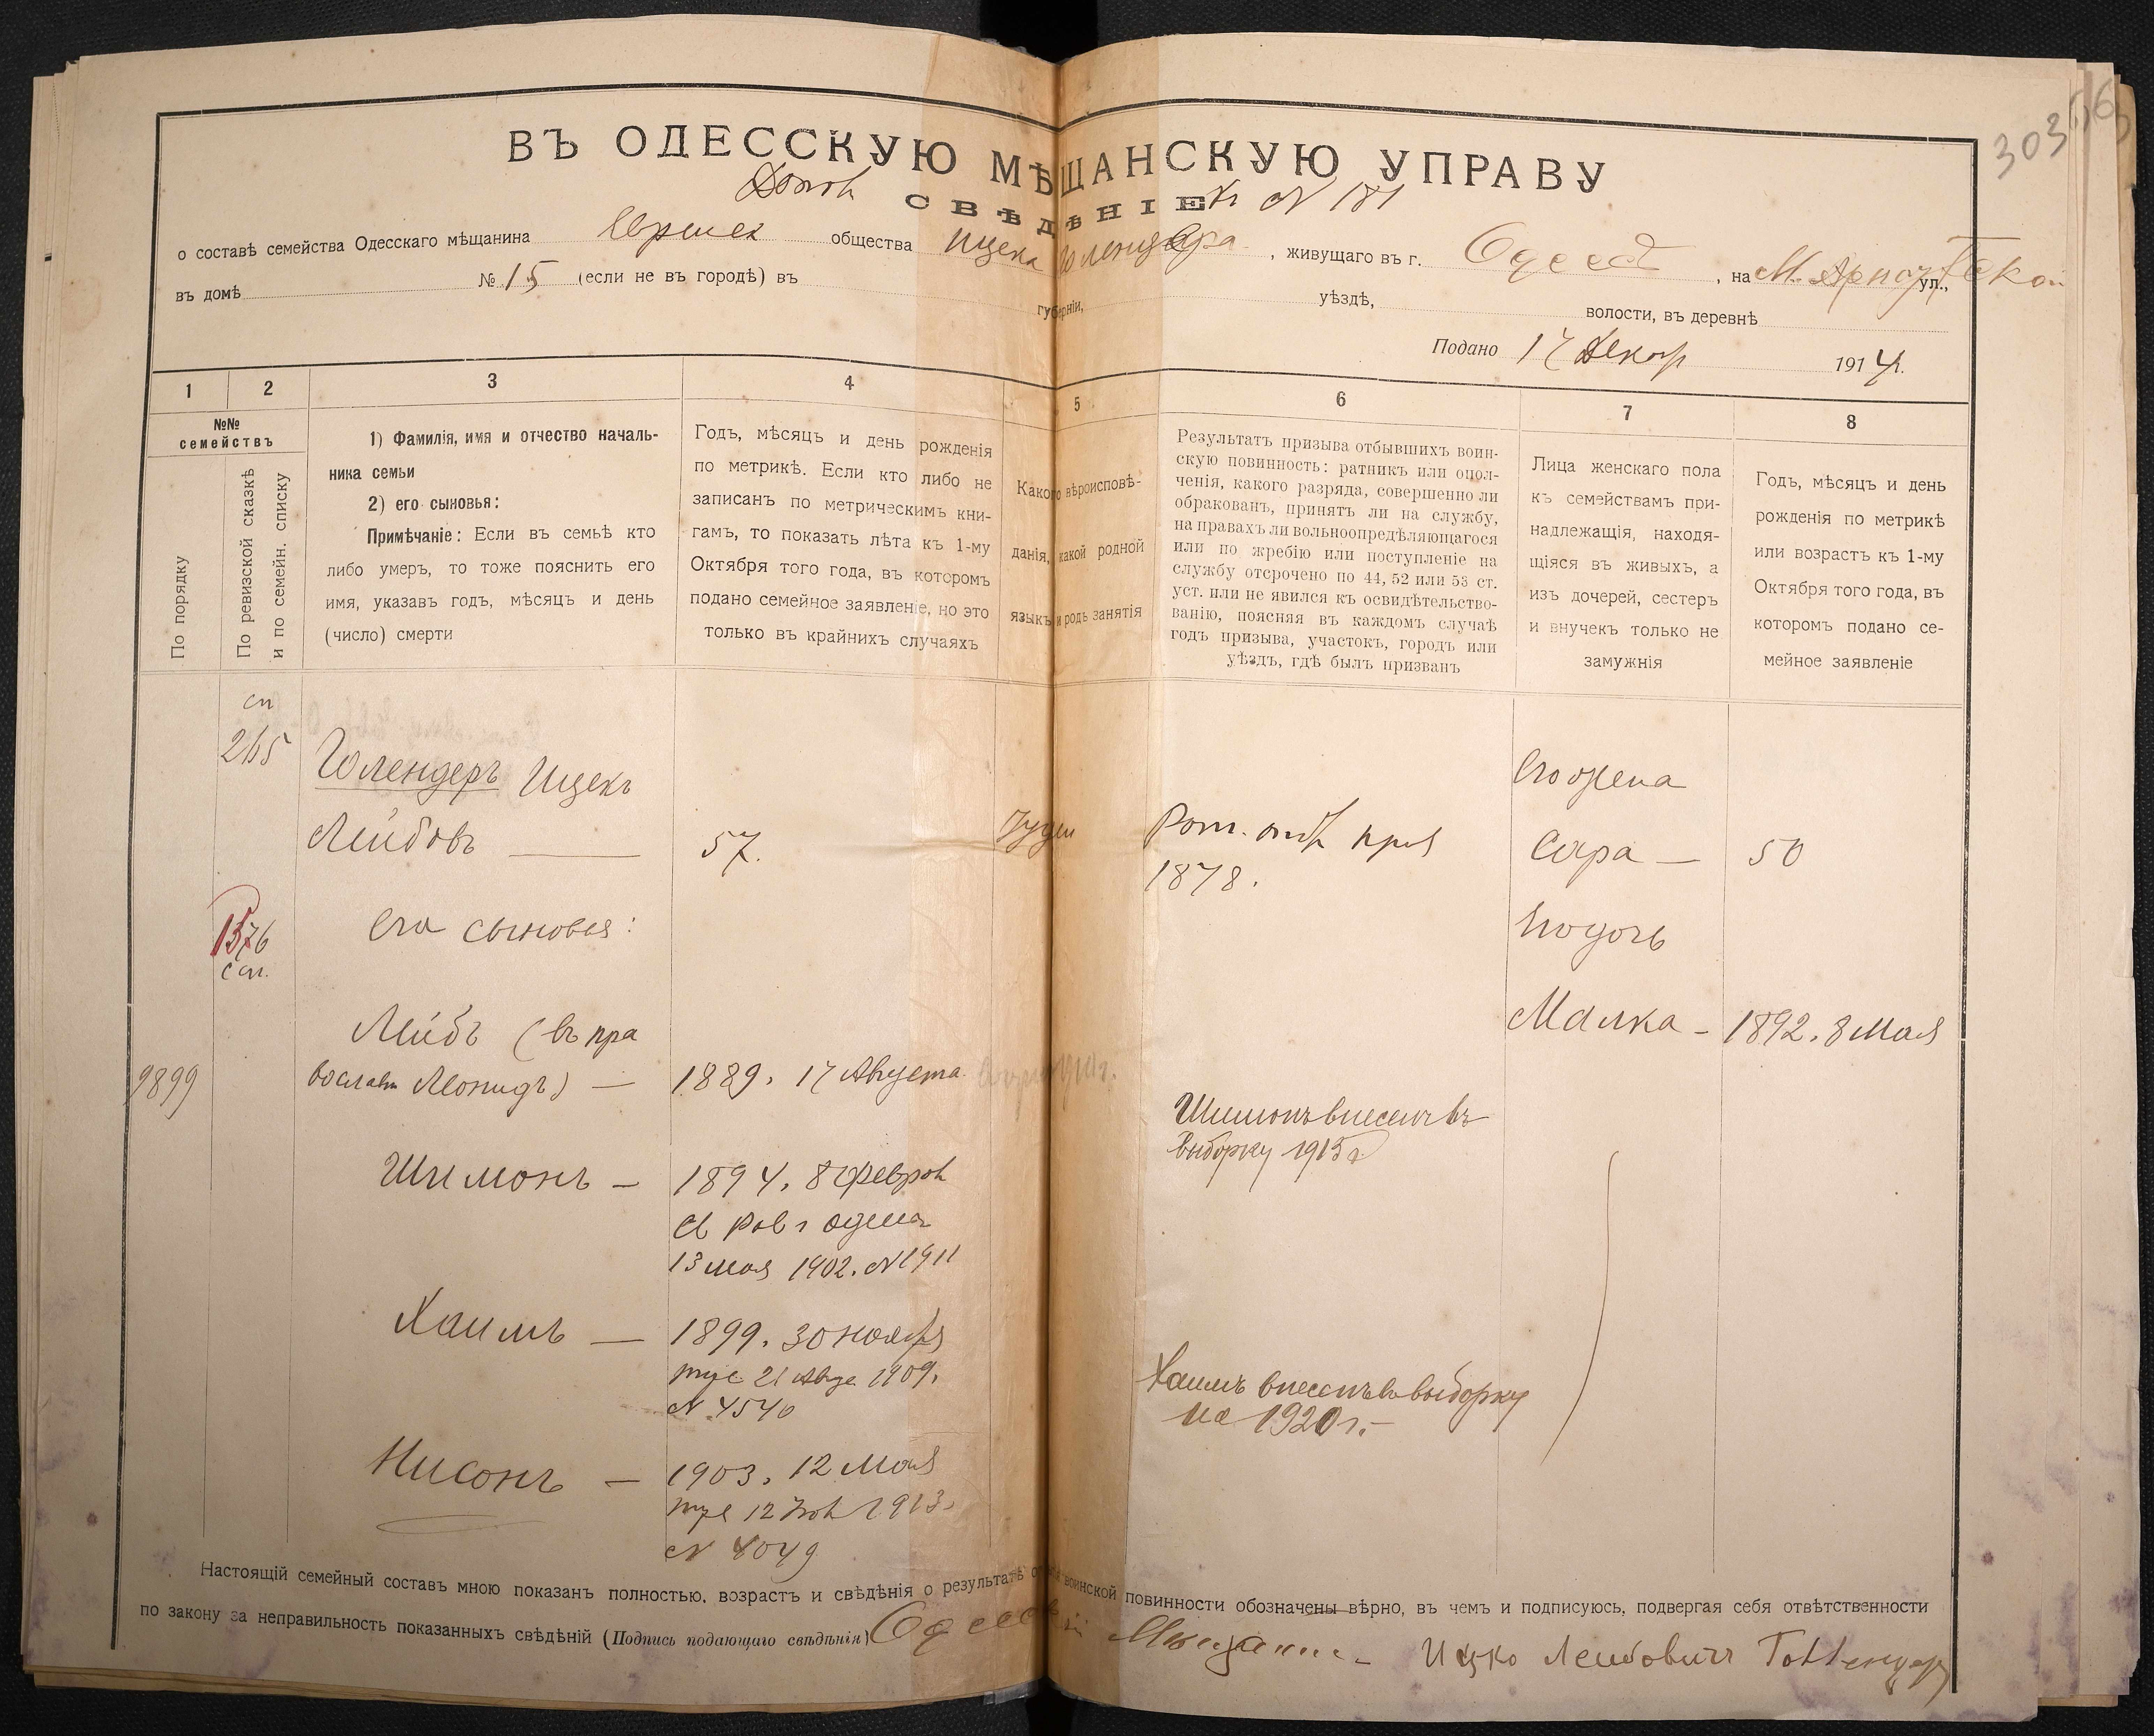 303
ВЪ ОДЕССКУЮ МѢЩАНСКУЮ УПРАВУ
СВѢДѢНІЕ
Допол къ N 181
о составѣ семейства Одесскаго мѣщанина Еврейск общества Ицека Голендера, живущаго въ г. Одессѣ, на М. Арнаутской ул.,
въ домѣ № 15 (если не въ городѣ) въ губерніи, уѣздѣ, волости, въ деревнѣ
Подано 17 Декабр 1914 г.
1 2 3 4 5 6 7 8
№№ семействъ
По порядку
По ревизской сказкѣ
и по семейн. списку
1) Фамилія, имя и отчество началь-
ника семьи
2) его сыновья:
Примѣчаніе: Если въ семьѣ кто
либо умеръ, то тоже пояснить его
имя, указавъ годъ, мѣсяцъ и день
(число) смерти
Годъ, мѣсяцъ и день рожденія
по метрикѣ. Если кто либо не
записанъ по метрическимъ кни-
гамъ, то показать лѣта къ 1-му
Октября того года, въ которомъ
подано семейное заявленіе, но это
только въ крайнихъ случаяхъ
Какого вѣроисповѣ-
данія, какой родной
языкъ и родъ занятія
Результатъ призыва отбывшихъ воин-
скую повинность: ратникъ или опол-
ченія, какого разряда, совершенно ли
обракованъ, принятъ ли на службу,
на правахъ ли вольноопредѣляющагося
или по жребію или поступленіе на
службу отсрочено по 44, 52 или 53 ст.
уст. или не явился къ освидѣтельство-
ванію, поясняя въ каждомъ случаѣ
годъ призыва, участокъ, городъ или
уѣздъ, гдѣ былъ призванъ
Лица женскаго пола
къ семействамъ при-
надлежащія, находя-
щіяся въ живыхъ, а
изъ дочерей, сестеръ
и внучекъ только не
замужнія
Годъ, мѣсяцъ и день
рожденія по метрикѣ
или возрастъ къ 1-му
Октября того года, въ
которомъ подано се-
мейное заявленіе
сп
265
Голендеръ Ицекъ
Лейбовъ — 57. Іудей
Рат. отб. приз
1878.
Его жена
Сара — 50
1576
сп.
Его сыновья:
Его дочь
Малка - 1892. 8 Мая
9899
Лейбъ (въ пра
вослави Леонидъ) — 1889. 17 Августа
Шимонъ внесенъ въ
выборку 1915 г
Шимонъ — 1894. 8 Феврал
С Рав г Одессы
13 мая 1902. N 1911
Хаимъ — 1899. 30 ноября
тус 21 Авгу 1909.
N 4540
Хаимъ внесенъ въ выборку
на 1920 г.-
Нисонъ — 1903. 12 Мая
тус 12 1913.
N 4049
Настоящій семейный составъ мною показанъ полностью, возрастъ и свѣдѣнія о результатѣ воинской повинности обозначены вѣрно, въ чемъ и подписуюсь, подвергая себя отвѣтственности
по закону за неправильность показанныхъ свѣдѣній (Подпись подающаго свѣдѣнія) Одесскій Мѣщанин - Ицко Лейбовичъ Голлендер